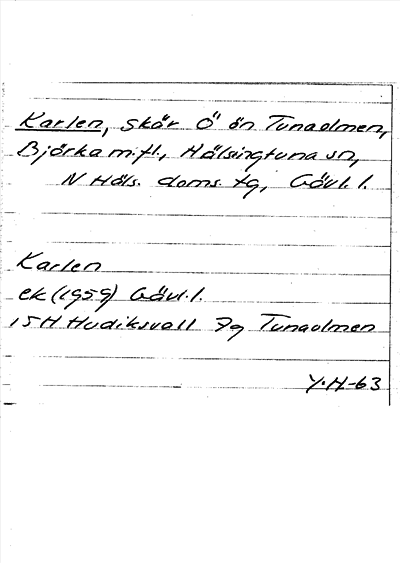 Karlen, skär Ö ön Tunaolmen,
Björka m.fl., Hälsingtuna sn,
N Häls. doms. tg, Gävl. l.
Karlen
ek (1959) Gävl. l.
15H Hudiksvall 7g Tunaolmen
Y.H-63